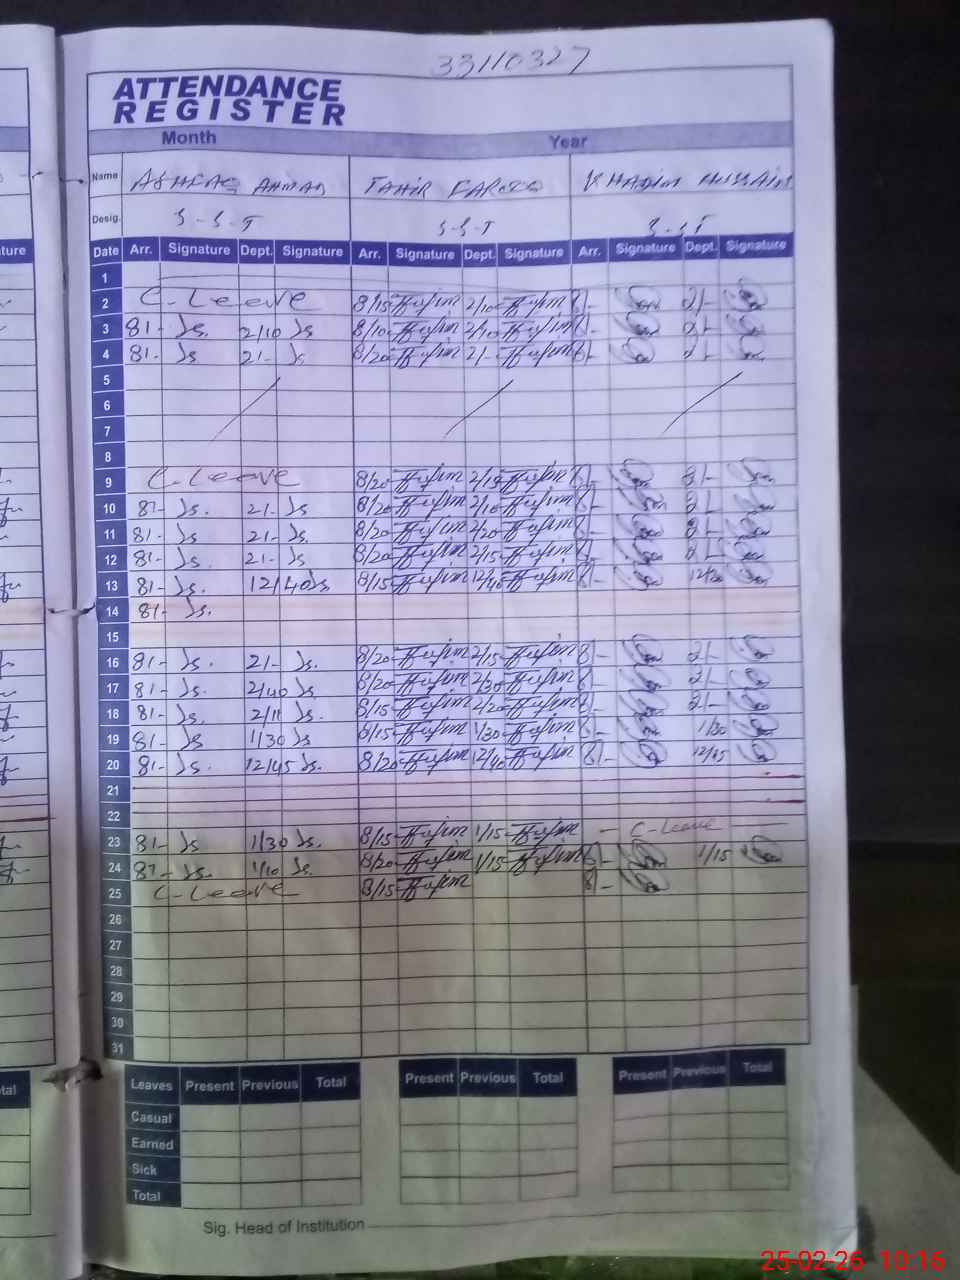 33110327
ATTENDANCE
REGISTER
Month Year
Name ASHFAQ AHMAD TAHIR FAROOQ KHADIM HUSSAIN
Desig. S-S-T S-S-T S-ST
Date Arr. Signature Dept. Signature Arr. Signature Dept. Signature Arr. Signature Dept. Signature
1
2 C-Leave 8/15 2/10 8/- 2/-
3 8/- Js. 2/10 Js 8/10 2/10 8/- 2/-
4 8/- Js 2/- Js 8/20 2/- 8/- 2/-
5
6
7
8
9 C-Leave 8/20 2/15 8/- 2/-
10 8/- Js. 2/- Js 8/20 2/10 8/- 2/-
11 8/- Js 2/- Js. 8/20 2/20 8/- 2/-
12 8/- Js. 2/- Js 8/20 2/15 8/- 2/-
13 8/- Js. 12/40 Js. 8/15 12/40 8/-
14 8/- Js.
15
16 8/- Js. 2/- Js. 8/20 2/15 8/- 2/-
17 8/- Js. 2/40 Js 8/20 2/30 8/- 2/-
18 8/- Js. 2/11 Js. 8/15 2/20 8/- 2/-
19 8/- Js 1/30 Js 8/15 1/30 8/- 1/30
20 8/- Js. 12/45 Js. 8/20 12/40 8/- 12/45
21
22
23 8/- Js 1/30 Js. 8/15 1/15 - C-Leave -
24 8/- Js. 1/10 Js. 8/20 1/15 8/- 1/15
25 C-Leave 8/15 8/-
26
27
28
29
30
31
Leaves Present Previous Total Present Previous Total Present Previous Total
Casual
Earned
Sick
Total
Sig. Head of Institution
25-02-26 10:16